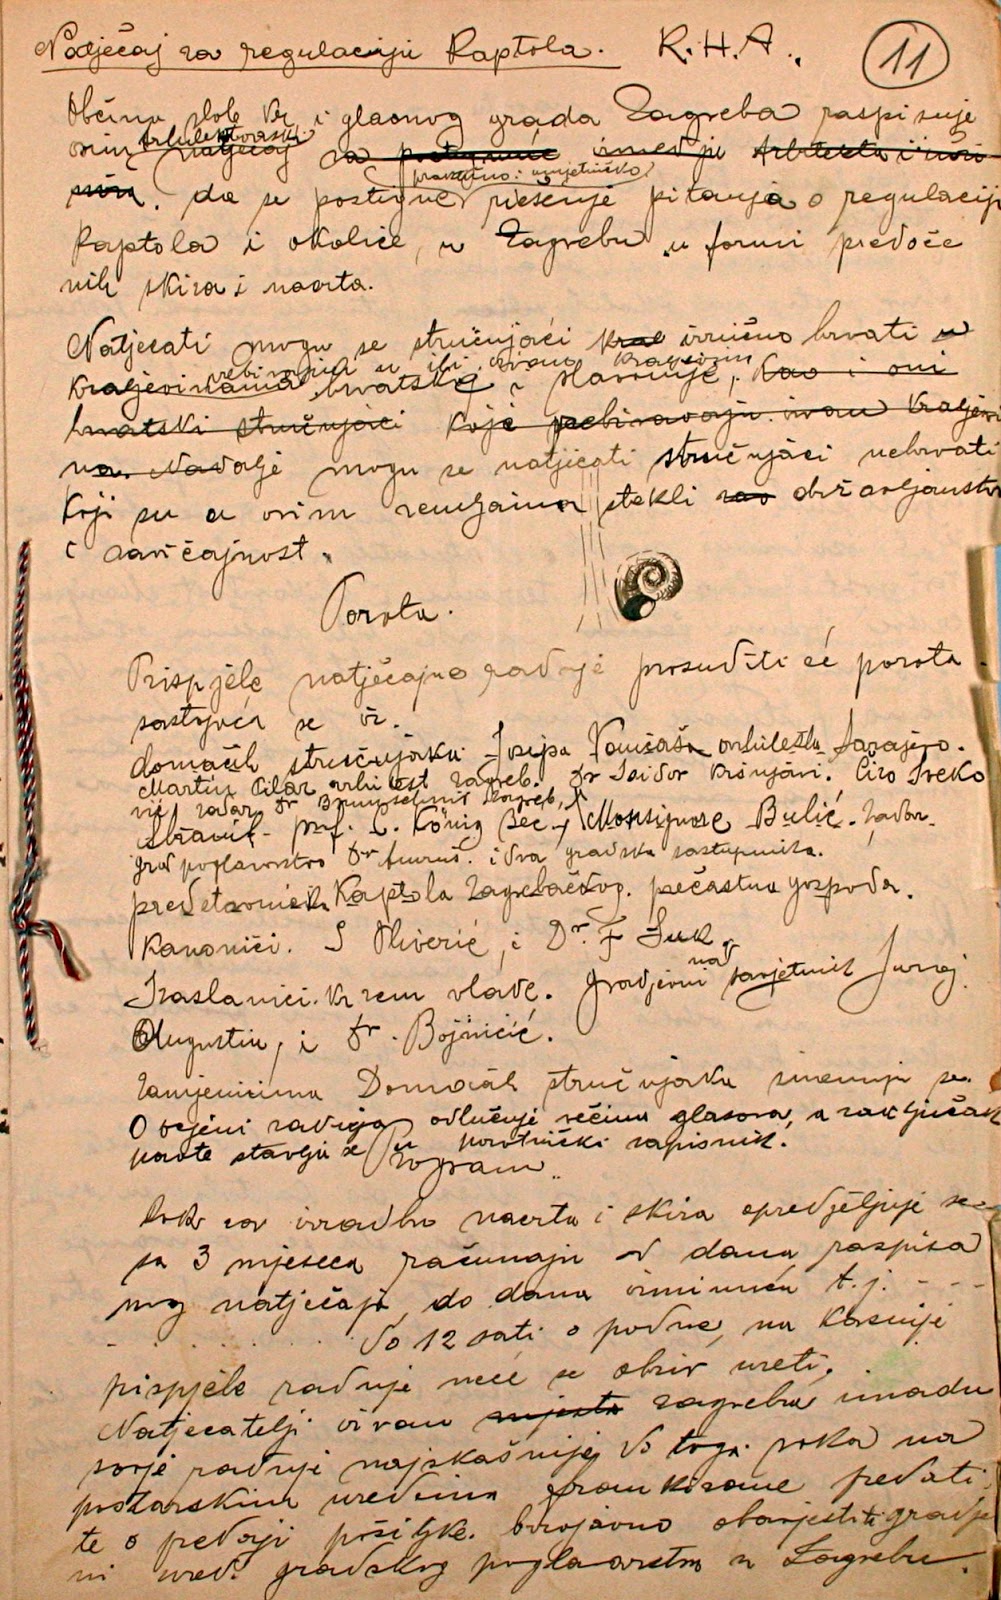 Natječaj za regulaciju Kaptola. K.H.A. 11
Občina slob kr. i glavnog grada Zagreba raspisuje
arhitektonski
ovim natječaj za postignuće između arhitekta i
praktično i umjetničko
da se postigne riešenje pitanja o regulaciji
Kaptola i okoliće, u Zagrebu u formi predoče
nih skiza i nacrta.
Natjecati mogu se stručnjaci izrično hrvati u
ili izvan
kraljevinama hrvatske i Slavonije, kao i oni
hrvatski stručnjaci koje prebivavaju izvan kraljevi
na. Nadalje mogu se natjecati stručnjaci nehrvati
koji su u ovim zemljama stekli državljanstvo
i zavičajnost.
Porota.
Prispjele natječajne radnje prosuditi će porota
sastojeća se iz.
domaćih stručnjaka Josipa Vancaša arhitekta Sarajevo.
Martin Pilar arhitekt Zagreb. Dr Isidor Kršnjavi. Ćiro Iveko
vić zadar Dr Brunschmid Zagreb,
prof. Monsignore Bulić. Zadar.
grad poglavarstvo Dr Amruš. i dva gradska zastupnika.
predstavnici Kaptola Zagrebačkog. prečastna gospoda.
Kanonici. i Dr. F Suk.
Izaslanici. kr zem vlade. Gradjevni nad savjetnik Juraj
Augustin, i Dr. Bojničić.
Zamjenicima Domaćih stručnjaka imenuju se.
O ocjeni radnja odlučuje većina glasova, a zaključak
porote stavlja se u porotnički zapisnik.
Program
Rok za izradbu nacrta i skiza opredjeljuje se
sa 3 mjeseca računaju od dana raspisa
ovog natječaja do dana t. j. - - -
- . . . . . do 12 sati o podne, na kasnije
prispjele radnje neće se obzir uzeti.
Natjecatelji izvan mjesta Zagreba imadu
svoje radnje najkašnije do toga roka na
poštarskim uredima frankirane predati
te o predaji pošiljke. brzojavno obavjestiti gradje
ni ured. gradskog poglavarstva u Zagrebu.